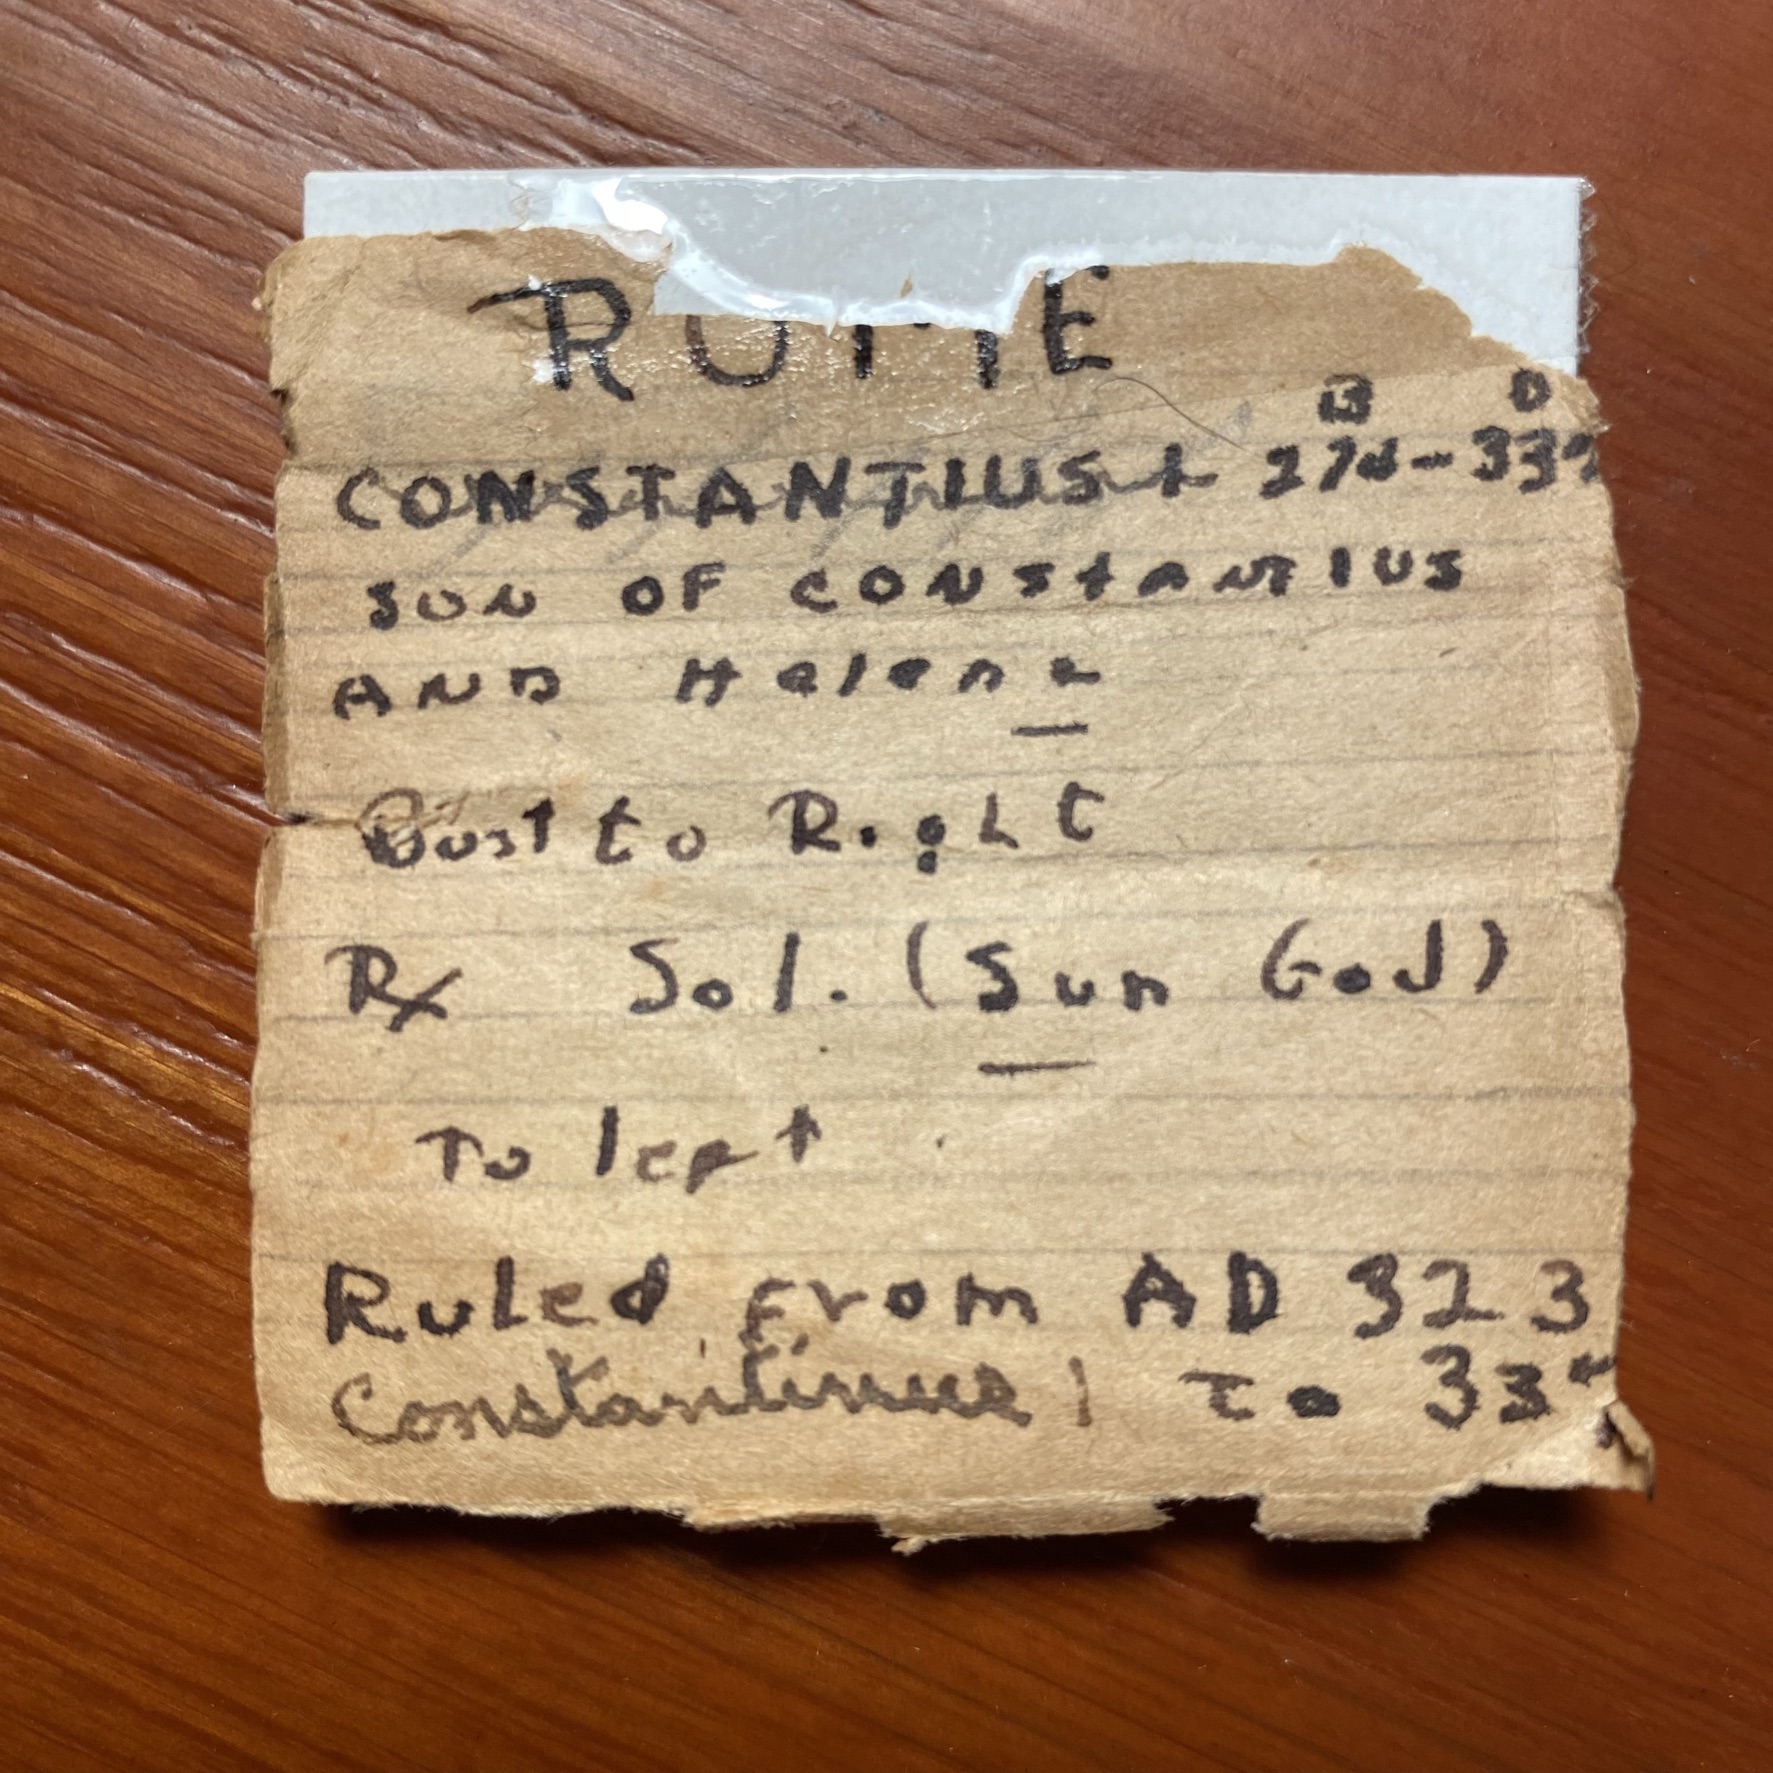 ROME
B D
CONSTANTIUS I 274-337
SON OF CONSTANTIUS
AND Helena
Bust to Right
Rx Sol. (Sun God)
To left
Ruled From AD 323
Constantinus I To 337